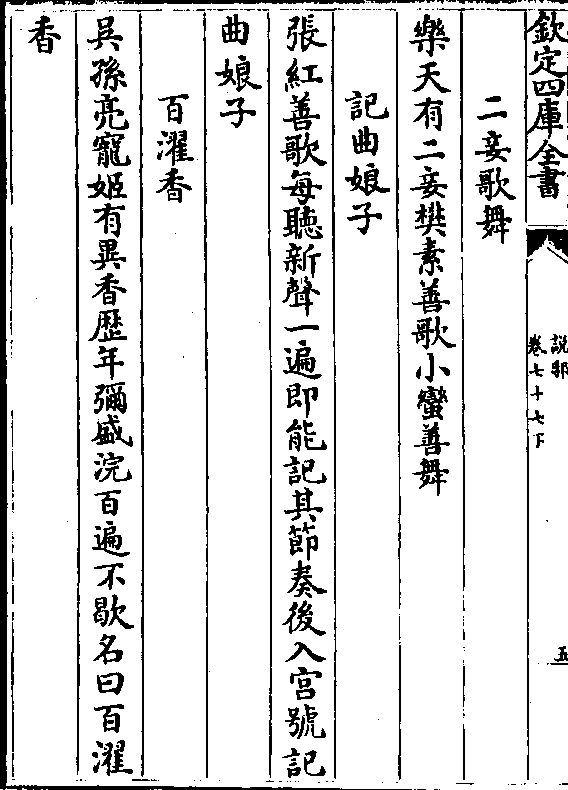 欽定四庫全書
說郛
卷七十七下
五
二妾歌舞
樂天有二妾樊素善歌小蠻善舞
記曲娘子
張紅善歌每聽新聲一遍即能記其節奏後入宮號記
曲娘子
百濯香
吳孫亮寵姬有異香歷年彌盛浣百遍不歇名曰百濯
香